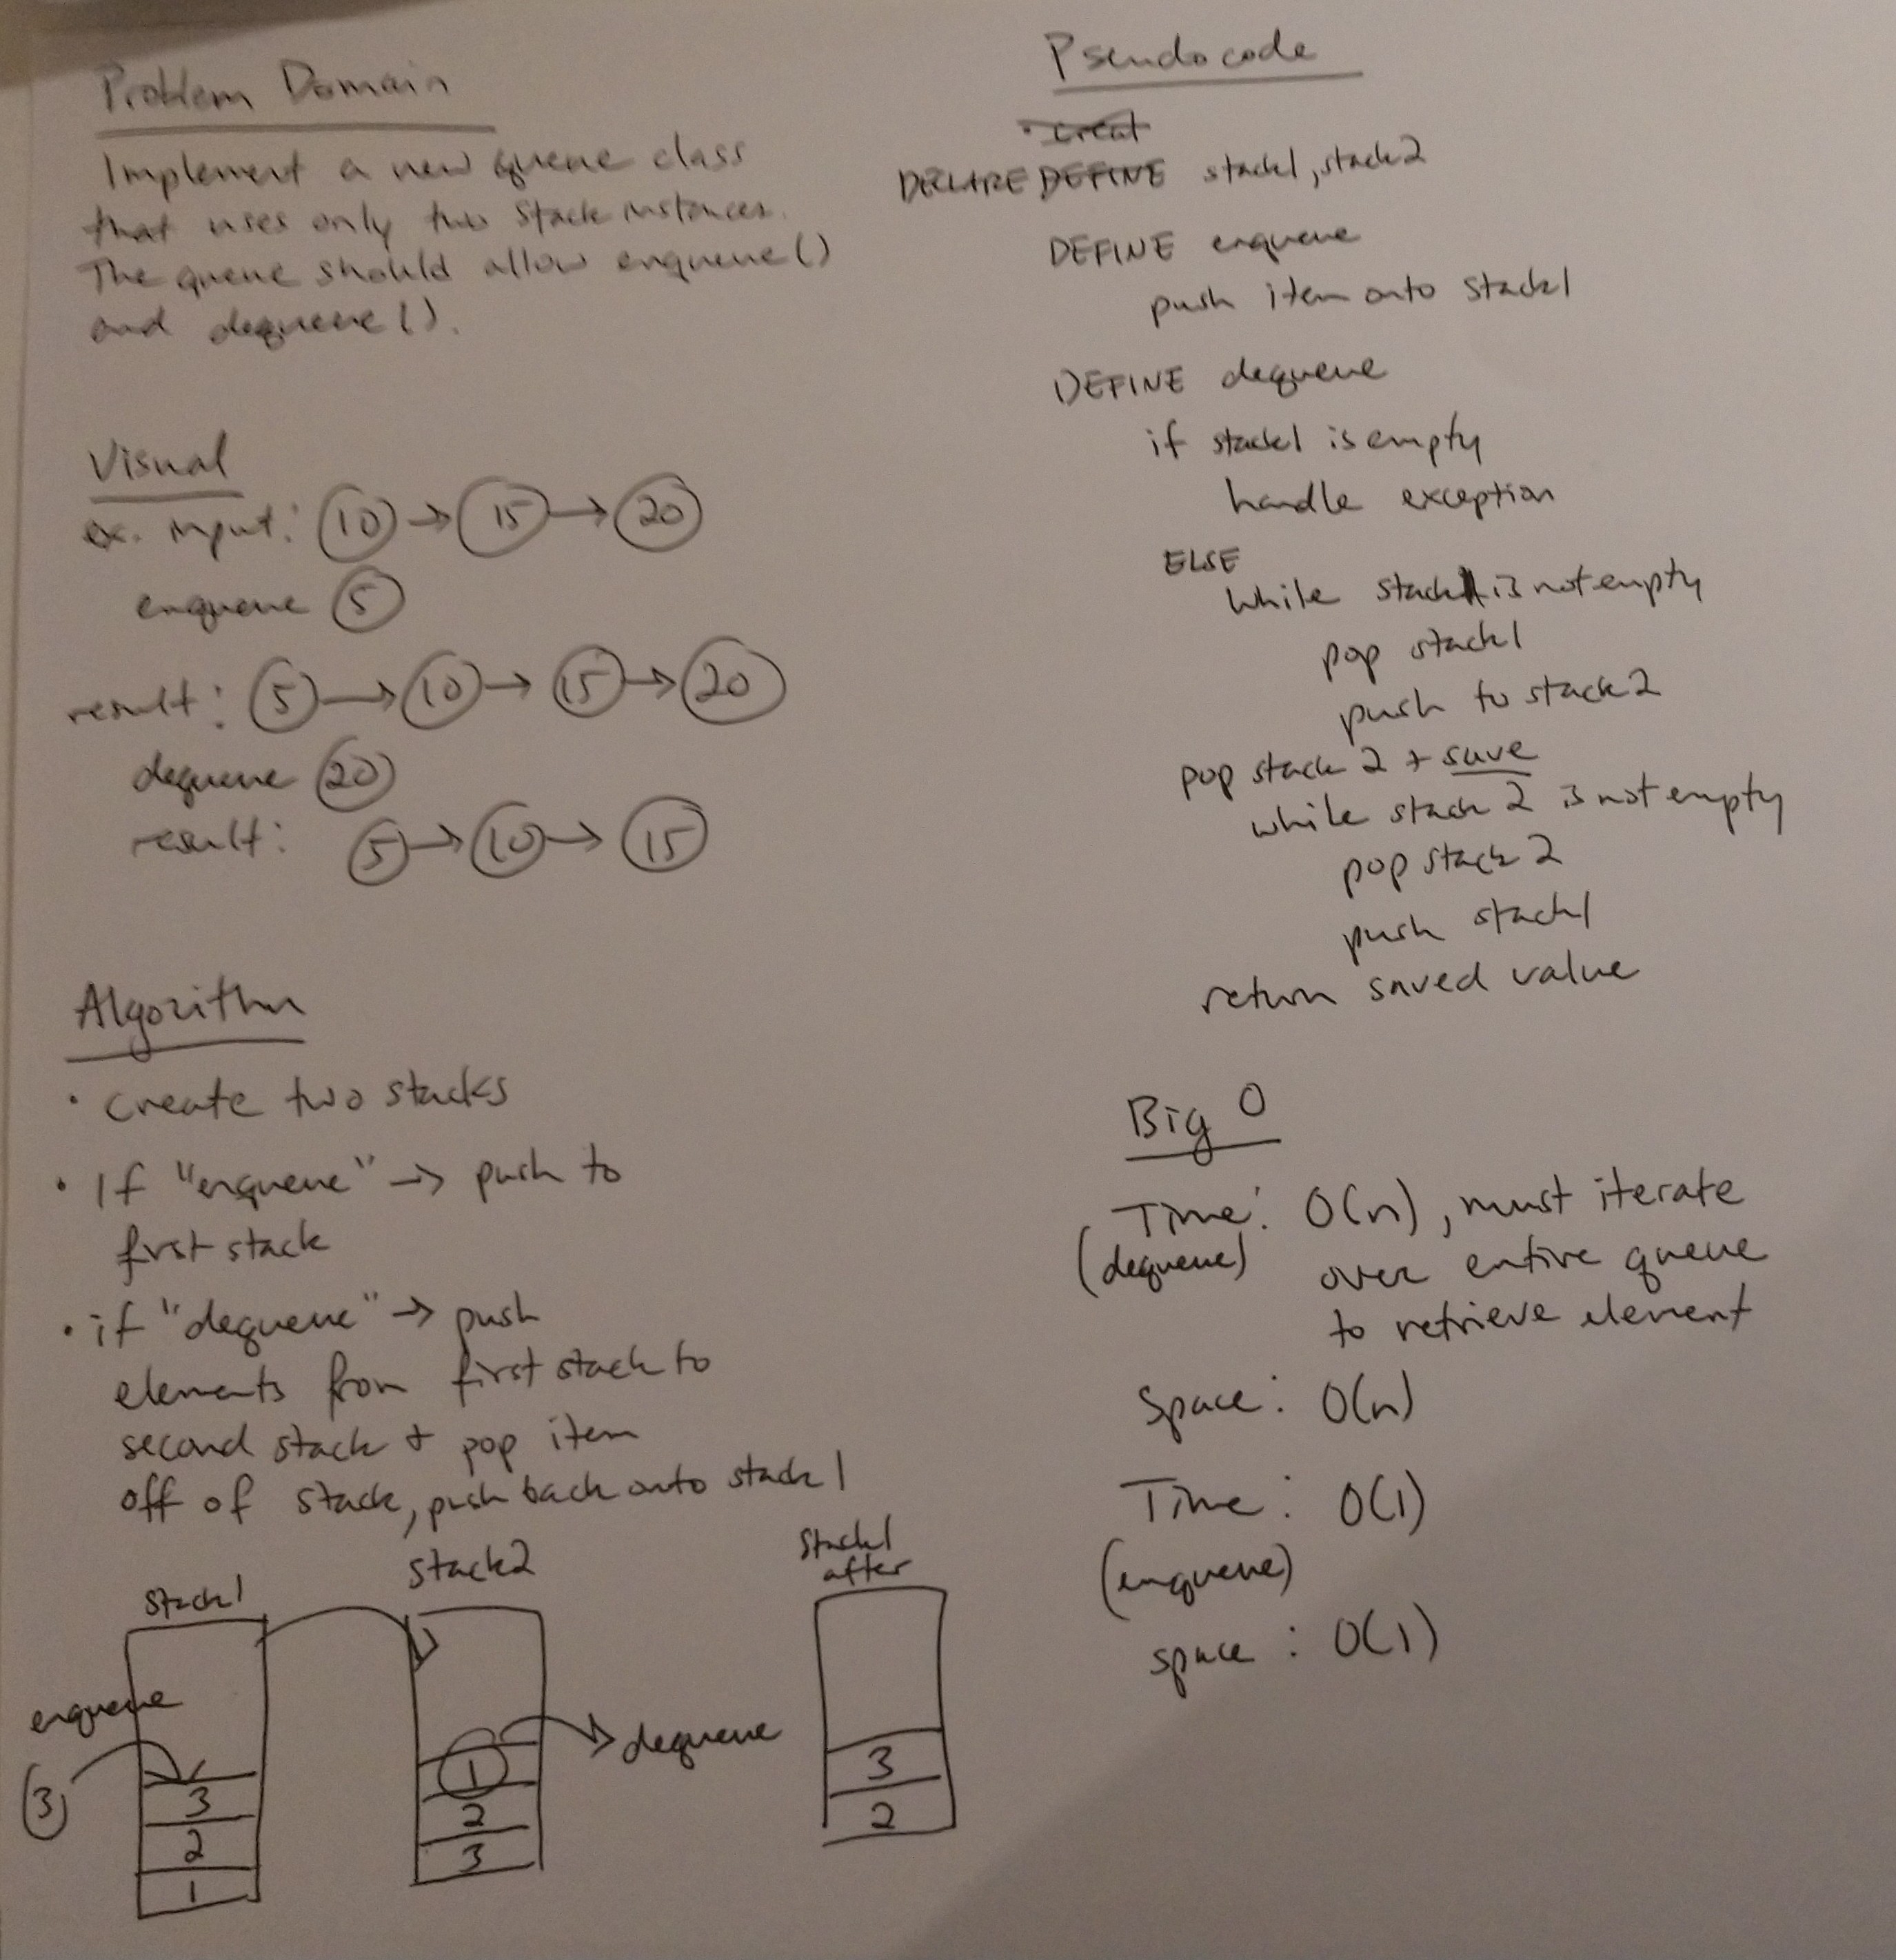 Problem Domain
Implement a new queue class
that uses only two stack instances.
The queue should allow enqueue()
and dequeue().
Visual
ex. input: 10 → 15 → 20
enqueue 5
result: 5 → 10 → 15 → 20
dequeue 20
result: 5 → 10 → 15
Algorithm
• create two stacks
• If "enqueue" → push to
first stack
• if "dequeue" → push
elements from first stack to
second stack + pop item
off of stack, push back onto stack 1
stack1
enqueue
3
3
2
1
stack2
1
2
3
dequeue
stack1
after
3
2
Pseudocode
• creat
DECLARE DEFINE stack1, stack2
DEFINE enqueue
push item onto stack1
DEFINE dequeue
if stack1 is empty
handle exception
ELSE
while stack1 is not empty
pop stack1
push to stack2
pop stack 2 + save
while stack 2 is not empty
pop stack 2
push stack1
return saved value
Big O
Time: O(n), must iterate
(dequeue) over entire queue
to retrieve element
Space: O(n)
Time: O(1)
(enqueue)
space: O(1)